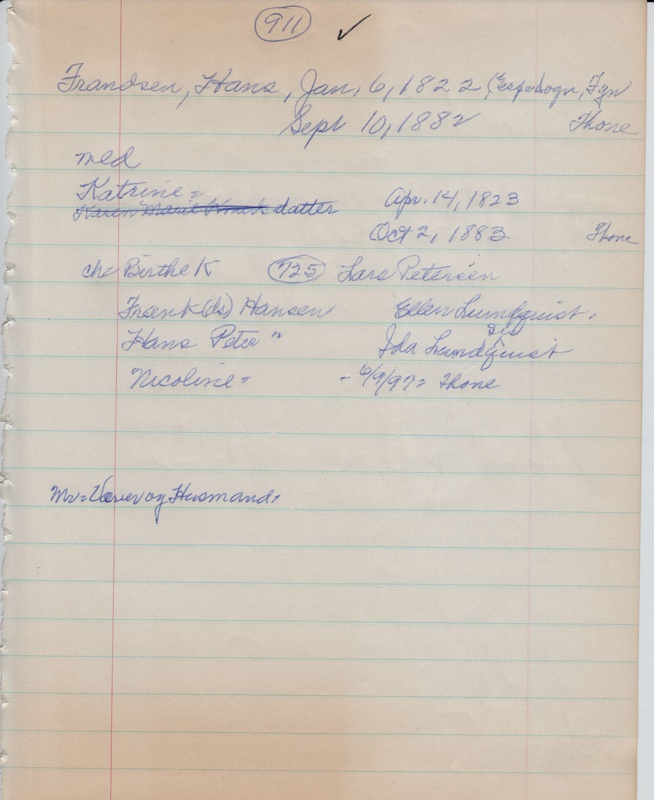 911 ✓
Frandsen, Hans, Jan. 6, 1822 (Espe Sogn, Fyn
Sept 10, 1882 Thone
med
Katrine =
Karen Marie datter Apr. 14, 1823
Oct 2, 1883 Thone
ch - Birthe K 725 Lars Petersen
Frank (ds) Hansen Ellen Lundquist.
Hans Peter " sis
Ida Lundquist
Nicoline = - 6/9/97 = Thone
Mr = Væver og Husmand.